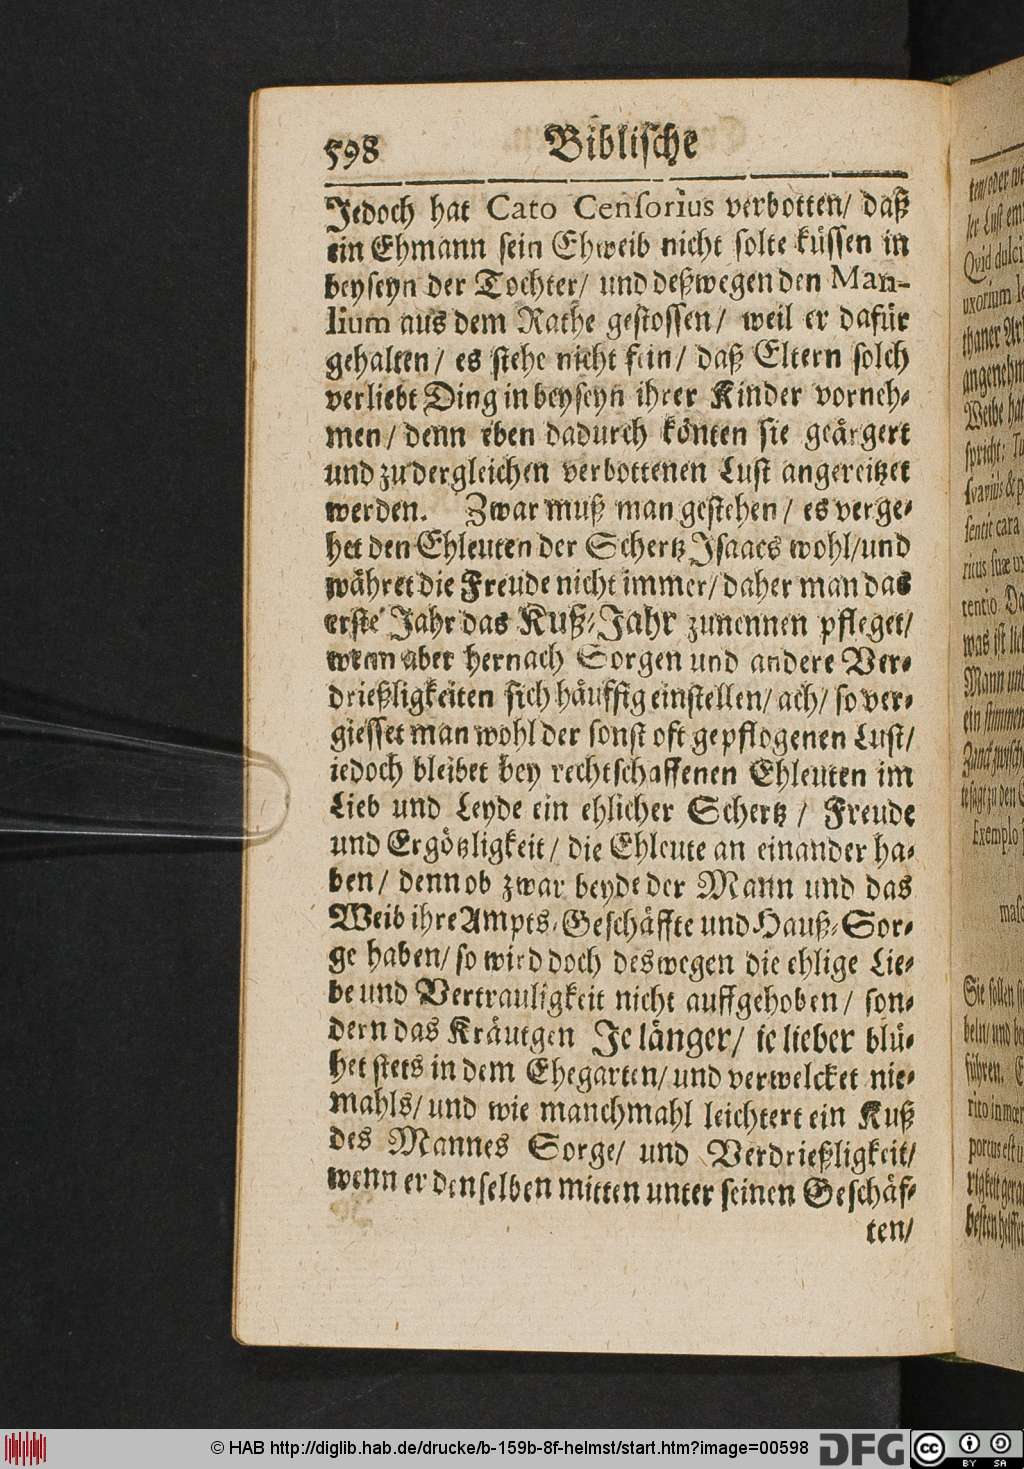 598 Biblische
Jedoch hat Cato Censorius verbotten/ daß
ein Ehmann sein Ehweib nicht solte küssen in
beyseyn der Tochter/ und deßwegen den Man-
lium aus dem Rathe gestossen/ weil er dafür
gehalten/ es stehe nicht fein/ daß Eltern solch
verliebt Ding in beyseyn ihrer Kinder vorneh-
men/ denn eben dadurch könten sie geärgert
und zu dergleichen verbottenen Lust angereitzet
werden. Zwar muß man gestehen/ es verge-
het den Ehleuten der Schertz Isaacs wohl/ und
währet die Freude nicht immer/ daher man das
erste Jahr das Kuß-Jahr zunennen pfleget/
wenn aber hernach Sorgen und andere Ver-
drießligkeiten sich häuffig einstellen/ ach/ so ver-
giesset man wohl der sonst oft gepflogenen Lust/
iedoch bleibet bey rechtschaffenen Ehleuten im
Lieb und Leyde ein ehlicher Schertz / Freude
und Ergötzligkeit/ die Ehleute an einander ha-
ben/ denn ob zwar beyde der Mann und das
Weib ihre Ampts-Geschäffte und Hauß-Sor-
ge haben/ so wird doch deswegen die ehlige Lie-
be und Vertrauligkeit nicht auffgehoben/ son-
dern das Kräutgen Je länger/ ie lieber blü-
het stets in dem Ehegarten/ und verwelcket nie-
mahls/ und wie manchmahl leichtert ein Kuß
des Mannes Sorge/ und Verdrießligkeit/
wenn er denselben mitten unter seinen Geschäf-
ten/
© HAB http://diglib.hab.de/drucke/b-159b-8f-helmst/start.htm?image=00598
DFG
cc BY SA